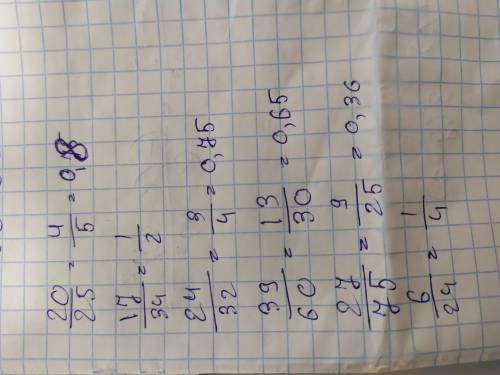 20/25 = 4/5 = 0,8
17/34 = 1/2
24/32 = 3/4 = 0,75
39/60 = 13/30 = 0,65
27/75 = 9/25 = 0,36
6/24 = 1/4